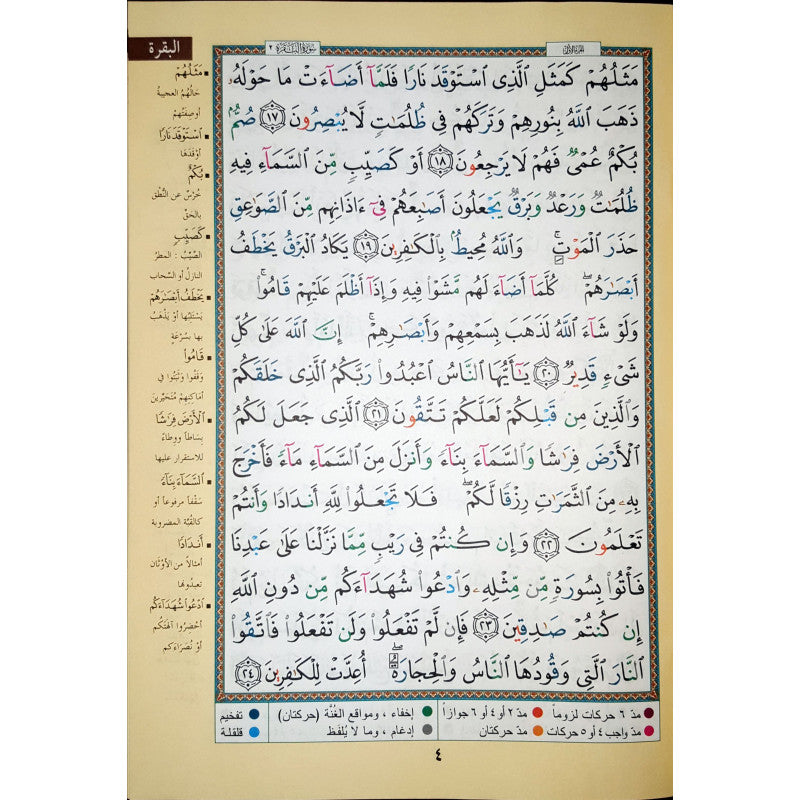 البقرة
سُورَةُ البَقَرَةِ ٢
الجزء الأول
مَثَلُهُمْ كَمَثَلِ ٱلَّذِى ٱسْتَوْقَدَ نَارًا فَلَمَّآ أَضَآءَتْ مَا حَوْلَهُۥ
ذَهَبَ ٱللَّهُ بِنُورِهِمْ وَتَرَكَهُمْ فِى ظُلُمَٰتٍ لَّا يُبْصِرُونَ ١٧ صُمٌّۢ
بُكْمٌ عُمْىٌ فَهُمْ لَا يَرْجِعُونَ ١٨ أَوْ كَصَيِّبٍ مِّنَ ٱلسَّمَآءِ فِيهِ
ظُلُمَٰتٌ وَرَعْدٌ وَبَرْقٌ يَجْعَلُونَ أَصَٰبِعَهُمْ فِىٓ ءَاذَانِهِم مِّنَ ٱلصَّوَٰعِقِ
حَذَرَ ٱلْمَوْتِ ۚ وَٱللَّهُ مُحِيطٌۢ بِٱلْكَٰفِرِينَ ١٩ يَكَادُ ٱلْبَرْقُ يَخْطَفُ
أَبْصَٰرَهُمْ ۖ كُلَّمَآ أَضَآءَ لَهُم مَّشَوْا۟ فِيهِ وَإِذَآ أَظْلَمَ عَلَيْهِمْ قَامُوا۟ ۚ
وَلَوْ شَآءَ ٱللَّهُ لَذَهَبَ بِسَمْعِهِمْ وَأَبْصَٰرِهِمْ ۚ إِنَّ ٱللَّهَ عَلَىٰ كُلِّ
شَىْءٍ قَدِيرٌ ٢٠ يَٰٓأَيُّهَا ٱلنَّاسُ ٱعْبُدُوا۟ رَبَّكُمُ ٱلَّذِى خَلَقَكُمْ
وَٱلَّذِينَ مِن قَبْلِكُمْ لَعَلَّكُمْ تَتَّقُونَ ٢١ ٱلَّذِى جَعَلَ لَكُمُ
ٱلْأَرْضَ فِرَٰشًا وَٱلسَّمَآءَ بِنَآءً وَأَنزَلَ مِنَ ٱلسَّمَآءِ مَآءً فَأَخْرَجَ
بِهِۦ مِنَ ٱلثَّمَرَٰتِ رِزْقًا لَّكُمْ ۖ فَلَا تَجْعَلُوا۟ لِلَّهِ أَندَادًا وَأَنتُمْ
تَعْلَمُونَ ٢٢ وَإِن كُنتُمْ فِى رَيْبٍ مِّمَّا نَزَّلْنَا عَلَىٰ عَبْدِنَا
فَأْتُوا۟ بِسُورَةٍ مِّن مِّثْلِهِۦ وَٱدْعُوا۟ شُهَدَآءَكُم مِّن دُونِ ٱللَّهِ
إِن كُنتُمْ صَٰدِقِينَ ٢٣ فَإِن لَّمْ تَفْعَلُوا۟ وَلَن تَفْعَلُوا۟ فَٱتَّقُوا۟
ٱلنَّارَ ٱلَّتِى وَقُودُهَا ٱلنَّاسُ وَٱلْحِجَارَةُ ۖ أُعِدَّتْ لِلْكَٰفِرِينَ ٢٤
مَثَلُهُمْ
حَالُهُمُ العجيبةُ
أو صِفَتُهمْ
اسْتَوْقَدَ نَارًا
أوْقَدَهَا
بُكْمٌ
خُرْسٌ عن النُّطْقِ
بالحَقّ
كَصَيِّبٍ
الصَّيِّبُ : المطرُ
النازلُ أو السَّحاب
يَخْطَفُ أَبْصَارَهُمْ
يَسْتَلِبُها أوْ يَذْهَبُ
بها بسُرْعَةٍ
قَامُوا
وَقَفُوا وَثَبَتُوا في
أماكِنِهِمْ مُتَحَيِّرين
الْأَرْضَ فِرَاشًا
بِسَاطاً ووِطَاءً
للاستقرار عليها
السَّمَاءَ بِنَاءً
سَقْفاً مرفوعاً أو
كالقُبَّة المضروبة
أَنْدَادًا
أمثالاً من الأوْثَانِ
تعبدُونها
ادْعُوا شُهَدَاءَكُم
أحْضِرُوا آلهَتَكُم
أوْ نُصَرَاءَكم
مدّ ٦ حركات لزوماً
مدّ ٢ أو ٤ أو ٦ جوازاً
إخفاء ، ومواقع الغُنَّة (حركتان)
تفخيم
مدّ واجب ٤ أو ٥ حركات
مدّ حركتان
إدغام ، وما لا يُلفَظ
قلقلة
٤